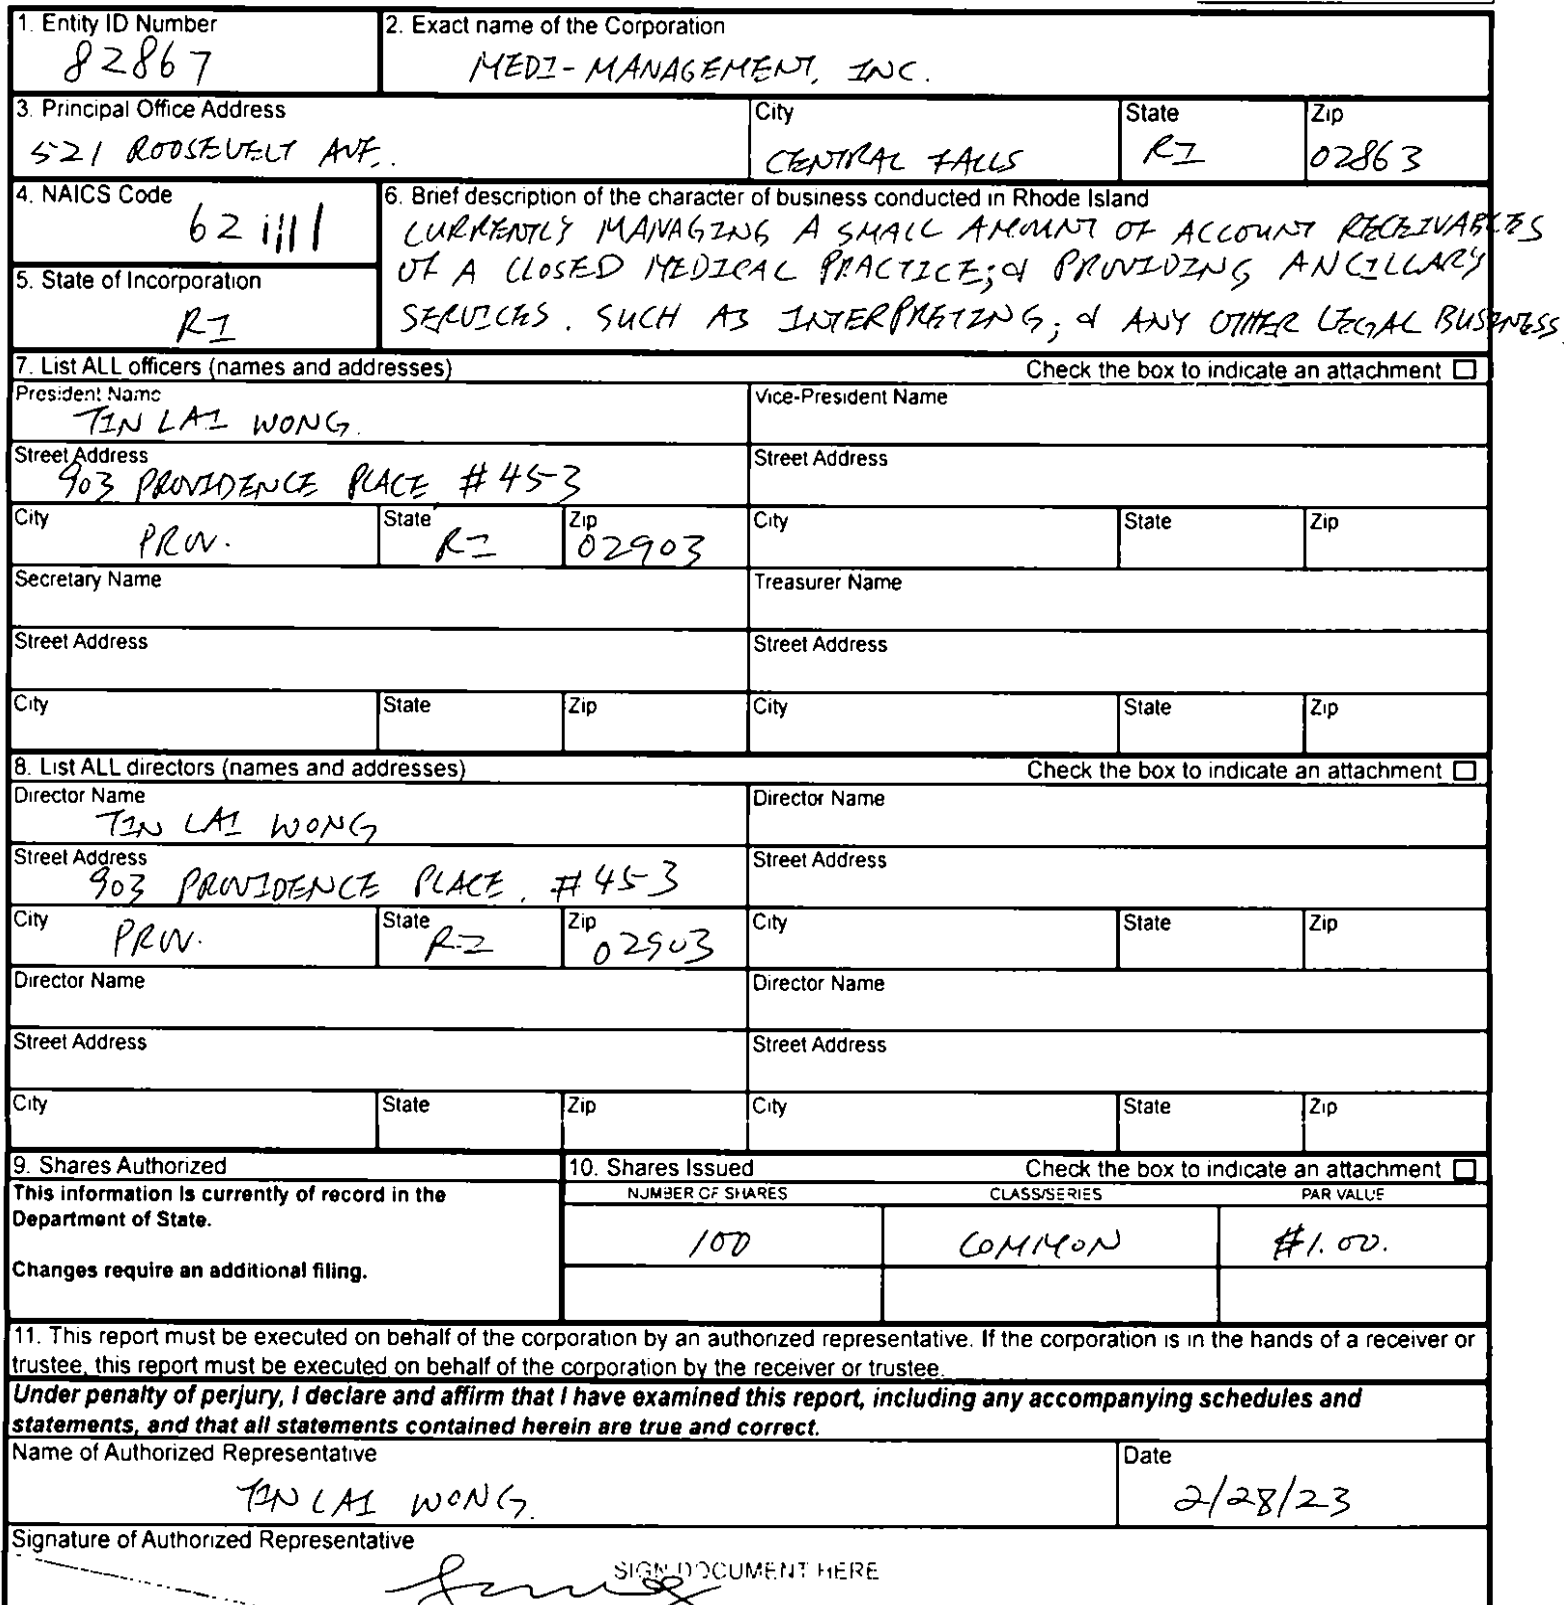 1. Entity ID Number
82867
2. Exact name of the Corporation
MEDI-MANAGEMENT, INC.
3. Principal Office Address
521 ROOSEVELT AVE.
City
CENTRAL FALLS
State
RI
Zip
02863
4. NAICS Code
621111
5. State of Incorporation
RI
6. Brief description of the character of business conducted in Rhode Island
CURRENTLY MANAGING A SMALL AMOUNT OF ACCOUNT RECEIVABLES
OF A CLOSED MEDICAL PRACTICE; & PROVIDING ANCILLARY
SERVICES. SUCH AS INTERPRETING; & ANY OTHER LEGAL BUSINESS.
7. List ALL officers (names and addresses) Check the box to indicate an attachment
President Name
TIN LAI WONG.
Vice-President Name
Street Address
903 PROVIDENCE PLACE #453
Street Address
City
PROV.
State
RI
Zip
02903
City
State
Zip
Secretary Name
Treasurer Name
Street Address
Street Address
City
State
Zip
City
State
Zip
8. List ALL directors (names and addresses) Check the box to indicate an attachment
Director Name
TIN LAI WONG
Director Name
Street Address
903 PROVIDENCE PLACE. #453
Street Address
City
PROV.
State
RI
Zip
02903
City
State
Zip
Director Name
Director Name
Street Address
Street Address
City
State
Zip
City
State
Zip
9. Shares Authorized
This information is currently of record in the
Department of State.
Changes require an additional filing.
10. Shares Issued Check the box to indicate an attachment
NUMBER OF SHARES CLASS/SERIES PAR VALUE
100 COMMON $1.00.
11. This report must be executed on behalf of the corporation by an authorized representative. If the corporation is in the hands of a receiver or
trustee, this report must be executed on behalf of the corporation by the receiver or trustee.
Under penalty of perjury, I declare and affirm that I have examined this report, including any accompanying schedules and
statements, and that all statements contained herein are true and correct.
Name of Authorized Representative
TIN LAI WONG.
Date
2/28/23
Signature of Authorized Representative
SIGN DOCUMENT HERE